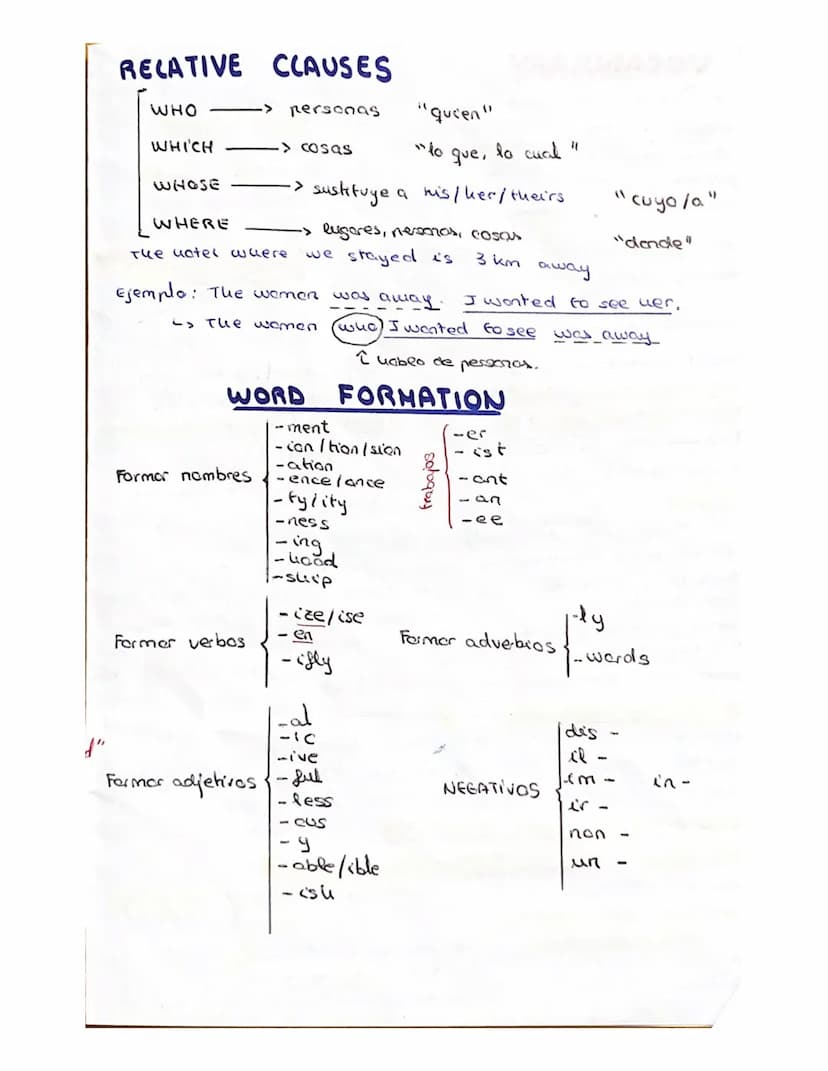 RELATIVE CLAUSES
WHO → personas "quien"
WHICH → cosas "lo que, lo cual"
WHOSE → sustituye a his/her/theirs "cuyo/a"
WHERE → lugares, personas, cosas "donde"
The hotel where we stayed is 3 km away
Ejemplo: The woman was away. I wanted to see her.
↳ The woman who I wanted to see was away
↑ hablo de personas.
WORD FORMATION
Formar nombres
-ment
-ion/tion/sion
-ation
-ence/ance
-ty/ity
-ness
-ing
-hood
-ship
trabajos
-er
-ist
-ant
-an
-ee
Formar verbos
-ize/ise
-en
-ifly
Formar adverbios
-ly
-wards
d"
Formar adjetivos
-al
-ic
-ive
-ful
-less
-ous
-y
-able/ible
-ish
NEGATIVOS
dis -
il -
im - in -
ir -
non -
un -